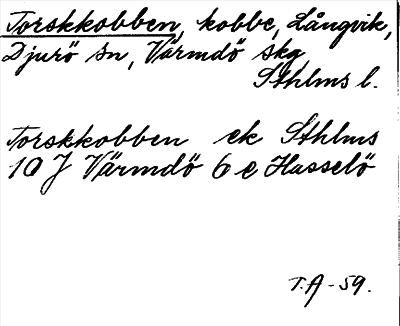 Torskkobben, kobbe, Långvik,
Djurö sn, Värmdö skg
Sthlms l.
Torskkobben ek Sthlms
10 J Värmdö 6 e Hasselö
T.A-59.